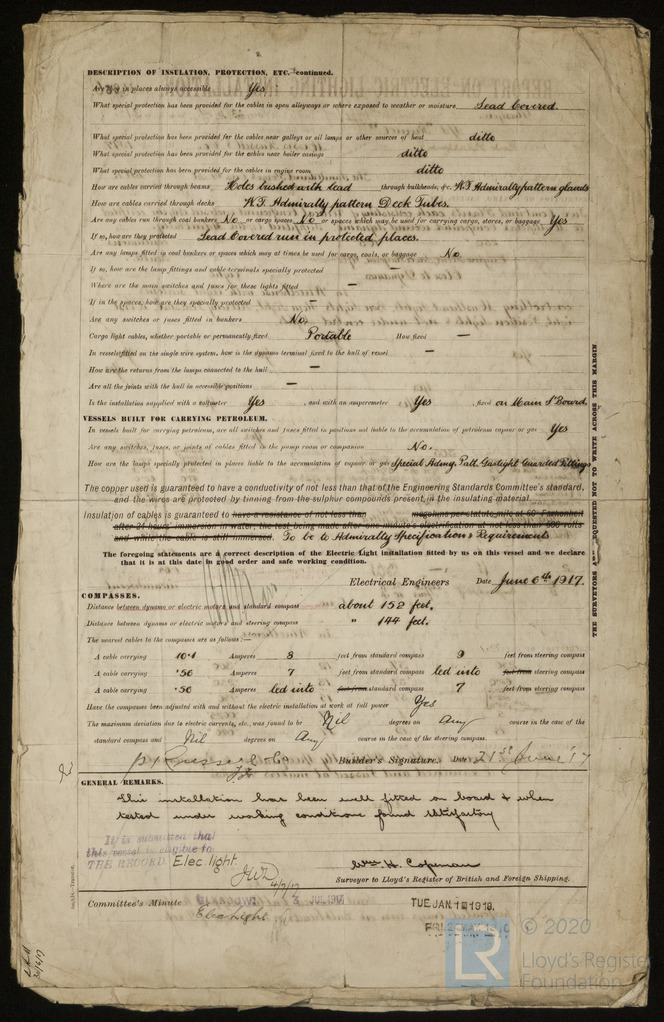 2.
DESCRIPTION OF INSULATION, PROTECTION, ETC.—continued.
Are they in places always accessible Yes
What special protection has been provided for the cables in open alleyways or where exposed to weather or moisture Lead Covered.
What special protection has been provided for the cables near galleys or oil lamps or other sources of heat ditto
What special protection has been provided for the cables near boiler casings ditto
What special protection has been provided for the cables in engine room ditto
How are cables carried through beams Holes bushed with lead through bulkheads, &c. W.T. Admiralty pattern glands
How are cables carried through decks W.T. Admiralty pattern Deck Tubes.
Are any cables run through coal bunkers No or cargo spaces No or spaces which may be used for carrying cargo, stores, or baggage Yes
If so, how are they protected Lead Covered run in protected places.
Are any lamps fitted in coal bunkers or spaces which may at times be used for cargo, coals, or baggage No.
If so, how are the lamp fittings and cable terminals specially protected —
Where are the main switches and fuses for these lights fitted —
If in the spaces, how are they specially protected —
Are any switches or fuses fitted in bunkers No.
Cargo light cables, whether portable or permanently fixed Portable How fixed —
In vessels fitted on the single wire system, how is the dynamo terminal fixed to the hull of vessel —
How are the returns from the lamps connected to the hull —
Are all the joints with the hull in accessible positions —
Is the installation supplied with a voltmeter Yes, and with an amperemeter Yes, fixed on Main S'Board.
VESSELS BUILT FOR CARRYING PETROLEUM.
In vessels built for carrying petroleum, are all switches and fuses fitted in positions not liable to the accumulation of petroleum vapour or gas Yes
Are any switches, fuses, or joints of cables fitted in the pump room or companion No.
How are the lamps specially protected in places liable to the accumulation of vapour or gas Special Admy. Patt. Gastight Guarded Fittings
The copper used is guaranteed to have a conductivity of not less than that of the Engineering Standards Committee's standard,
and the wires are protected by tinning from the sulphur compounds present in the insulating material.
Insulation of cables is guaranteed to have a resistance of not less than megohms per statute mile at 60° Fahrenheit
after 24 hours' immersion in water, the test being made after one minute's electrification at not less than 500 volts
and while the cable is still immersed. To be to Admiralty Specification & Requirements
The foregoing statements are a correct description of the Electric Light installation fitted by us on this vessel and we declare
that it is at this date in good order and safe working condition.
Electrical Engineers Date June 6th 1917.
COMPASSES.
Distance between dynamo or electric motors and standard compass about 152 feet.
Distance between dynamo or electric motors and steering compass " 144 feet.
The nearest cables to the compasses are as follows:—
A cable carrying 10.1 Amperes 8 feet from standard compass 9 feet from steering compass
A cable carrying .56 Amperes 7 feet from standard compass led into feet from steering compass
A cable carrying .56 Amperes led into feet from standard compass 7 feet from steering compass
Have the compasses been adjusted with and without the electric installation at work at full power Yes
The maximum deviation due to electric currents, etc., was found to be Nil degrees on Any course in the case of the
standard compass and Nil degrees on Any course in the case of the steering compass.
Builder's Signature. Date 21st June '17
GENERAL REMARKS.
This installation has been well fitted on board & when
tested under working conditions found satisfactory
It is submitted that
this vessel is eligible for
THE RECORD. Elec light.
JWD
4/7/17
Wm H. Copeman
Surveyor to Lloyd's Register of British and Foreign Shipping.
Committee's Minute
3 JUL. 1917
TUE. JAN. 1 1918.
Elec Light
THE SURVEYORS ARE REQUESTED NOT TO WRITE ACROSS THIS MARGIN
© 2020
LR
Lloyd's Register
Foundation